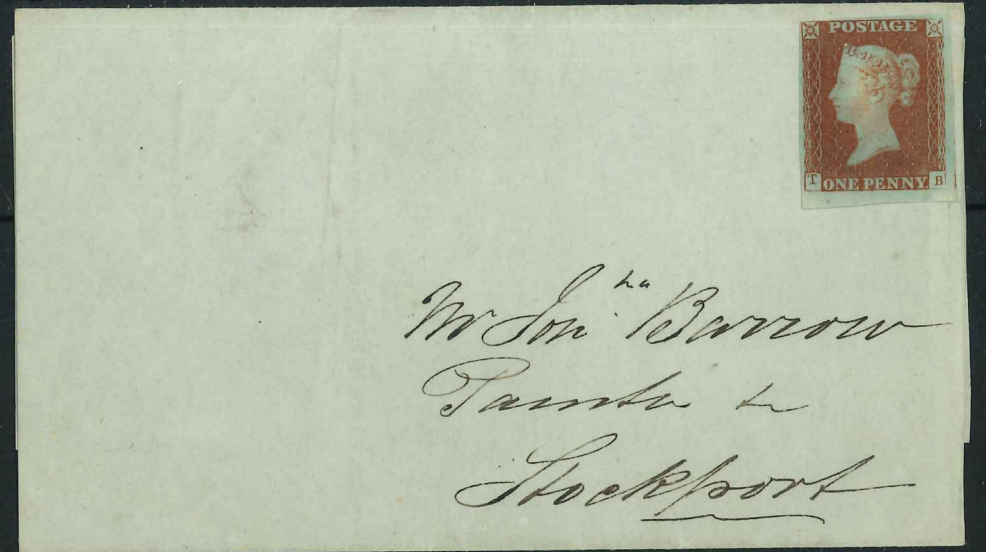 POSTAGE
T ONE PENNY B
Mr Jonha Barrow
Painter &c
Stockport